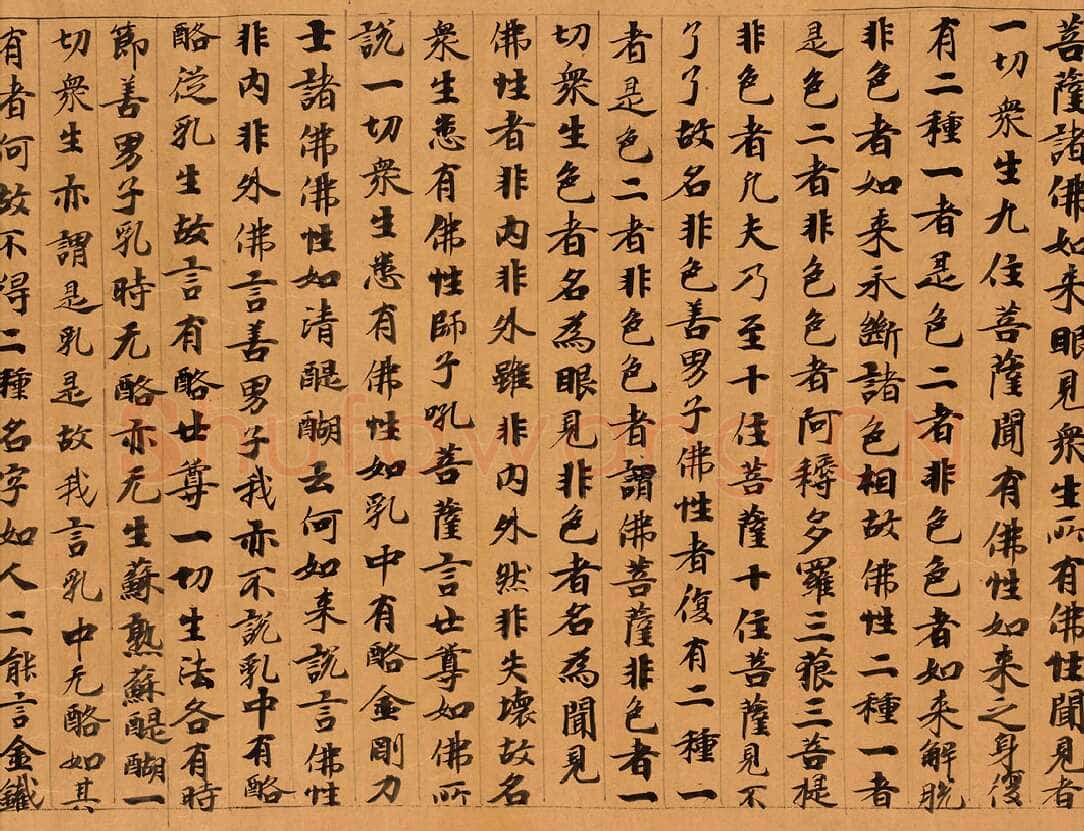 菩薩諸佛如来眼見衆生所有佛性聞見者
一切衆生九住菩薩聞有佛性如来之身復
有二種一者是色二者非色色者如来解脱
非色者如来永斷諸色相故佛性二種一者
是色二者非色色者阿耨多羅三藐三菩提
非色者凡夫乃至十住菩薩十住菩薩見不
了了故名非色善男子佛性者復有二種一
者是色二者非色色者謂佛菩薩非色者一
切衆生色者名為眼見非色者名為聞見
佛性者非内非外雖非内外然非失壞故名
衆生悉有佛性師子吼菩薩言世尊如佛所
說一切衆生悉有佛性如乳中有酪金剛力
士諸佛佛性如清醍醐云何如来說言佛性
非内非外佛言善男子我亦不說乳中有酪
酪從乳生故言有酪世尊一切生法各有時
節善男子乳時无酪亦无生蘇熟蘇醍醐一
切衆生亦謂是乳是故我言乳中无酪如其
有者何故不得二種名字如人二能言金鐵
Shufawang.CN